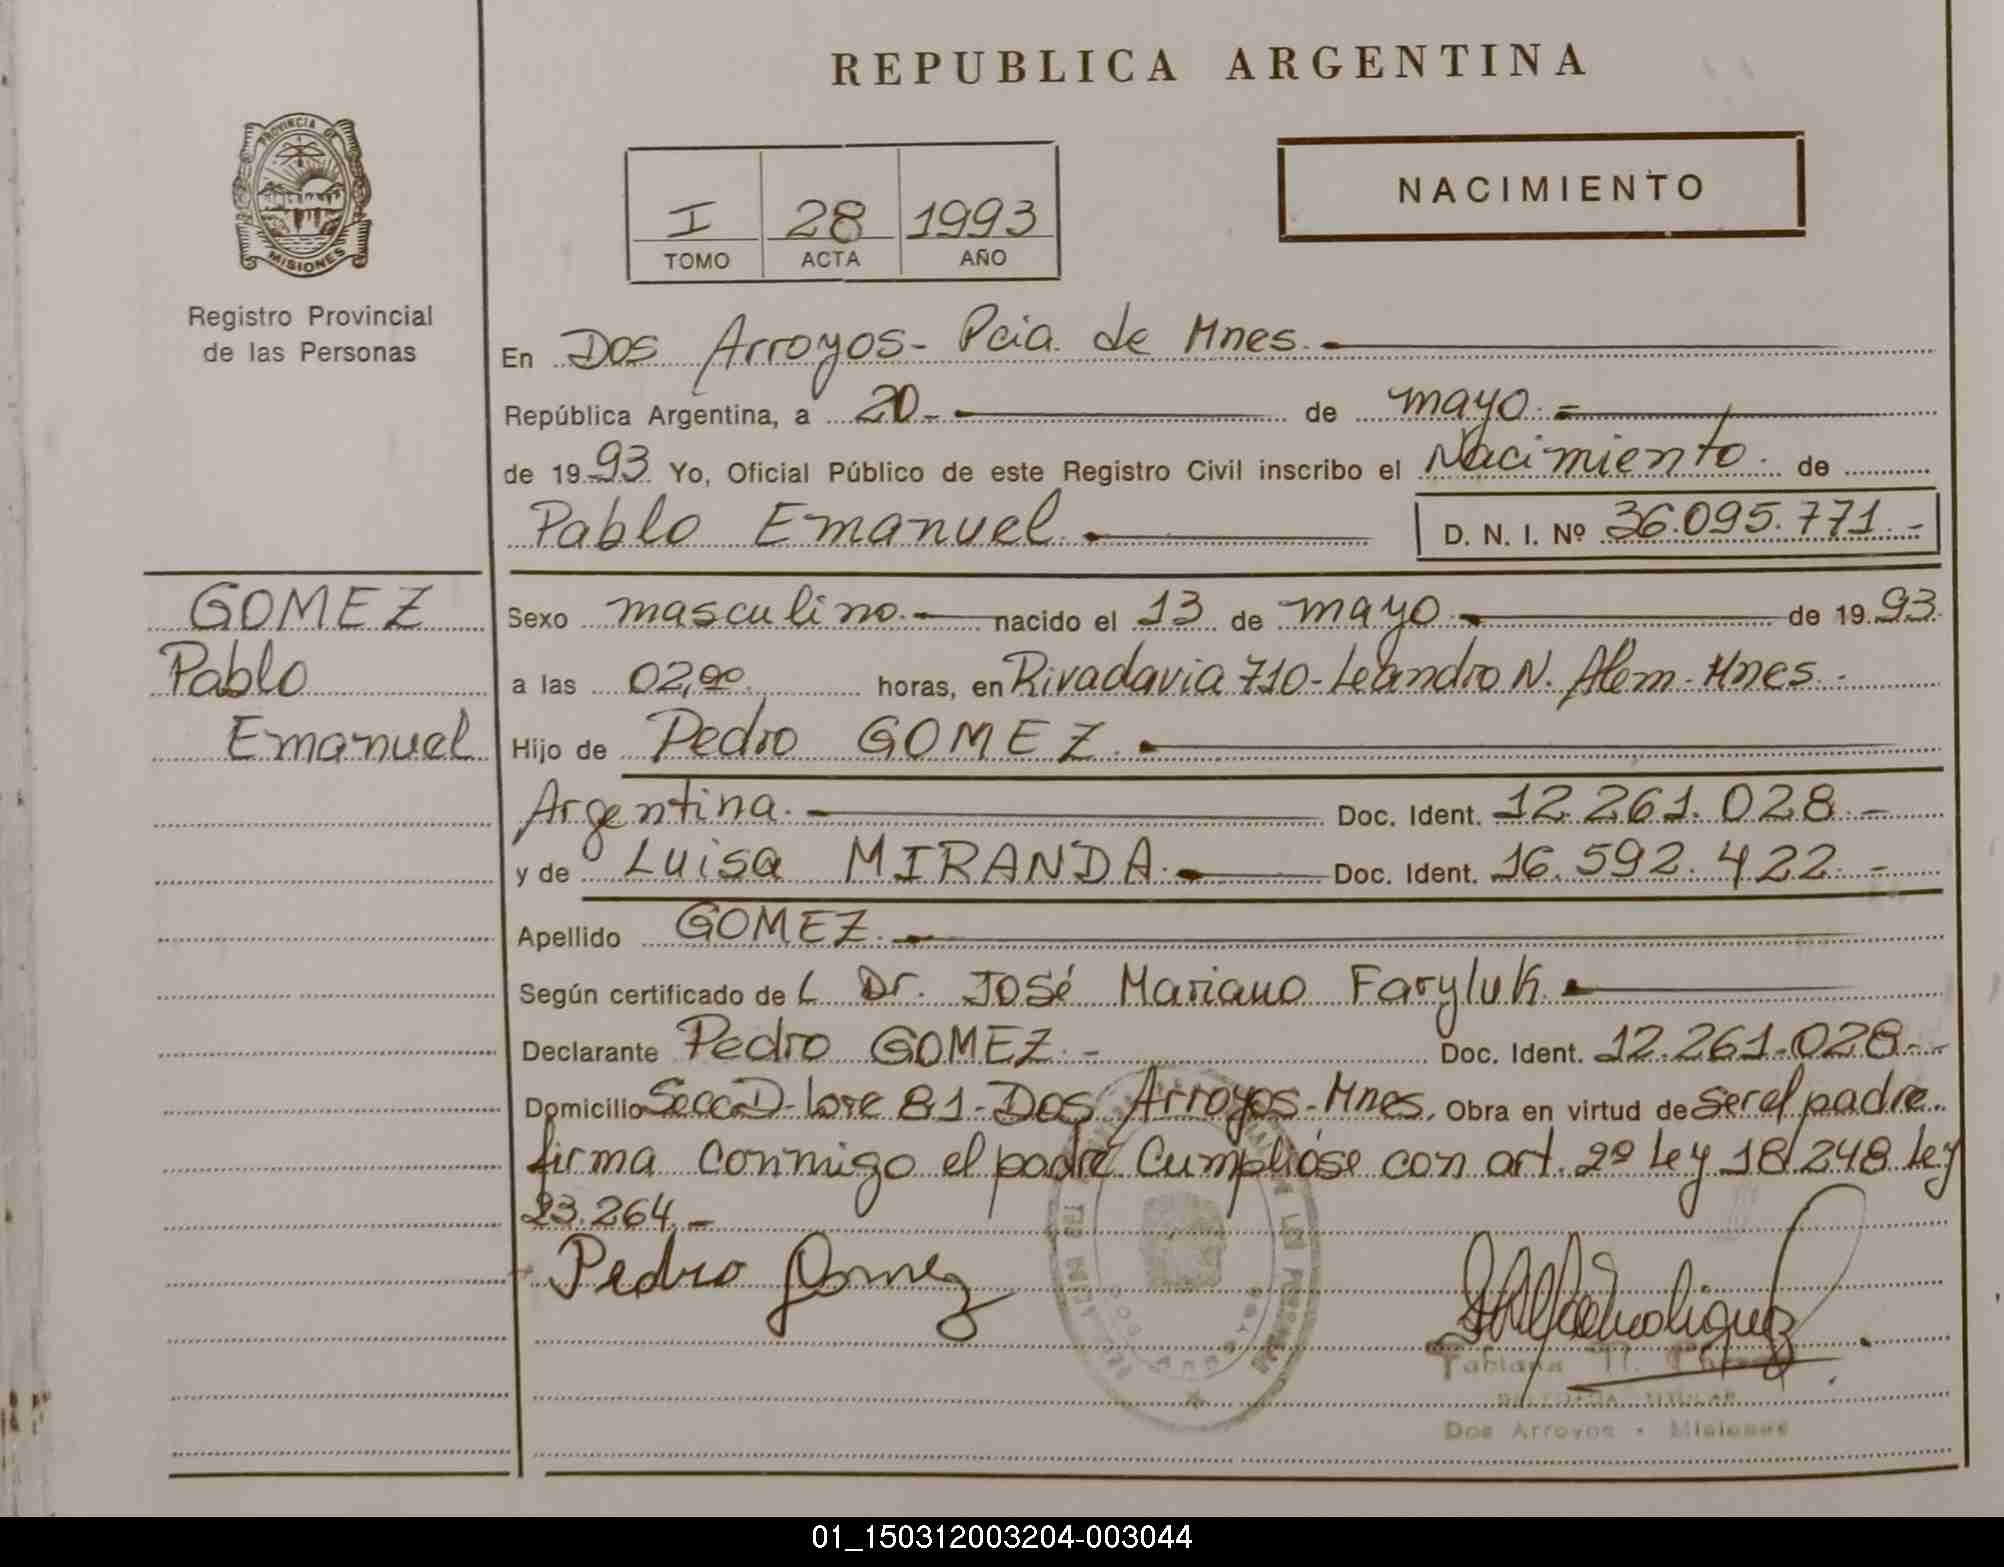 REPUBLICA ARGENTINA
PROVINCIA DE
MISIONES
Registro Provincial
de las Personas
I 28 1993
TOMO ACTA AÑO
NACIMIENTO
En Dos Arroyos - Pcia. de Mnes.
República Argentina, a 20.- de mayo.=
de 1993. Yo, Oficial Público de este Registro Civil inscribo el Nacimiento. de
Pablo Emanuel. D. N. I. Nº 36.095.771.-
GOMEZ
Pablo
Emanuel
Sexo masculino. nacido el 13 de mayo de 1993.
a las 02,00 horas, en Rivadavia 710 - Leandro N. Alem - Mnes.-
Hijo de Pedro GOMEZ.
Argentina. Doc. Ident. 12.261.028.-
y de Luisa MIRANDA. Doc. Ident. 16.592.422.-
Apellido GOMEZ.
Según certificado de L Dr. José Mariano Faryluk.
Declarante Pedro GOMEZ.- Doc. Ident. 12.261.028.-
Domicilio Secc D - Lote 81 - Dos Arroyos - Mnes. Obra en virtud de ser el padre.
firma conmigo el padre. Cumplióse con art. 2º Ley 18.248 Ley
23.264.-
Pedro Gomez
Dos Arroyos - Misiones
01_150312003204-003044